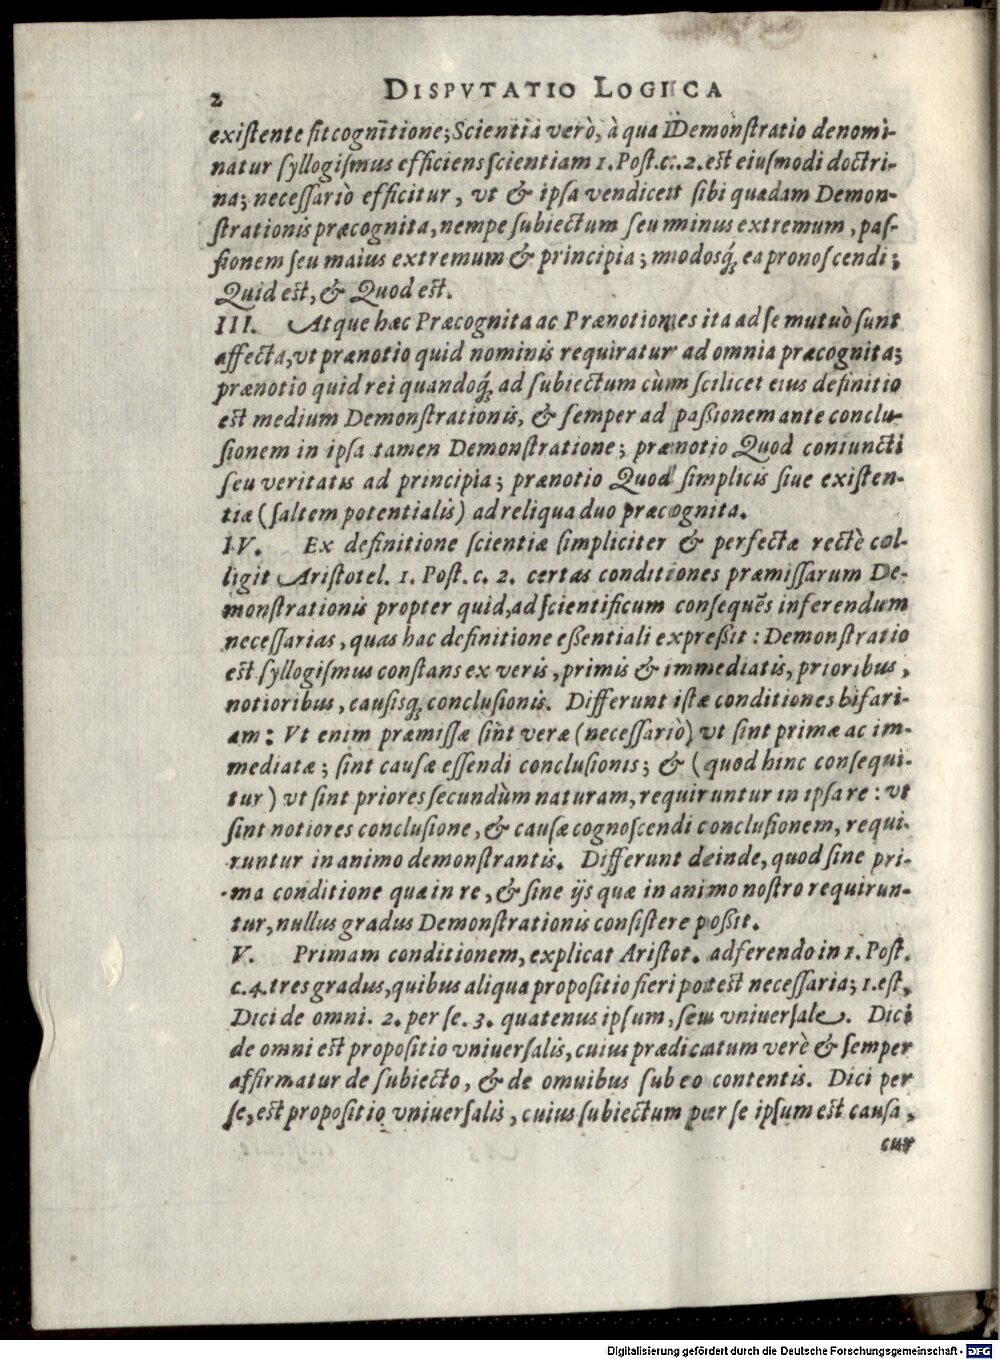 2 DISPVTATIO LOGICA
existente fit cognitione; Scientia verò, à qua Demonstratio denomi-
natur syllogismus efficiens scientiam 1. Post. c. 2. est eiusmodi doctri-
na; necessariò efficitur, vt & ipsa vendicet sibi quædam Demon-
strationis præcognita, nempe subiectum seu minus extremum, pas-
sionem seu maius extremum & principia; modosq́; ea pronoscendi;
Quid est, & Quod est.
III. Atque hæc Præcognita ac Prænotiones ita ad se mutuò sunt
affecta, vt prænotio quid nominis requiratur ad omnia præcognita;
prænotio quid rei quandoq́; ad subiectum cùm scilicet eius definitio
est medium Demonstrationis, & semper ad paßionem ante conclu-
sionem in ipsa tamen Demonstratione; prænotio Quod coniuncti
seu veritatis ad principia; prænotio Quod simplicis siue existen-
tiæ (saltem potentialis) ad reliqua duo præcognita.
IV. Ex definitione scientiæ simpliciter & perfectæ rectè col-
ligit Aristotel. 1. Post. c. 2. certas conditiones præmissarum De-
monstrationis propter quid, ad scientificum consequẽs inferendum
necessarias, quas hac definitione eßentiali expreßit: Demonstratio
est syllogismus constans ex veris, primis & immediatis, prioribus,
notioribus, causisq; conclusionis. Differunt istæ conditiones bifari-
am: Vt enim præmissæ sint veræ (necessariò) vt sint primæ ac im-
mediatæ; sint causæ essendi conclusionis; & (quod hinc consequi-
tur) vt sint priores secundùm naturam, requiruntur in ipsa re: vt
sint notiores conclusione, & causæ cognoscendi conclusionem, requi-
runtur in animo demonstrantis. Differunt deinde, quod sine pri-
ma conditione quæ in re, & sine ijs quæ in animo nostro requirun-
tur, nullus gradus Demonstrationis consistere poßit.
V. Primam conditionem, explicat Aristot. adferendo in 1. Post.
c. 4. tres gradus, quibus aliqua propositio fieri potest necessaria; 1. est,
Dici de omni. 2. per se. 3. quatenus ipsum, seu vniuersale. Dici
de omni est propositio vniuersalis, cuius prædicatum verè & semper
affirmatur de subiecto, & de omuibus sub eo contentis. Dici per
se, est propositio vniuersalis, cuius subiectum per se ipsum est causa,
cur
Digitalisierung gefördert durch die Deutsche Forschungsgemeinschaft - DFG